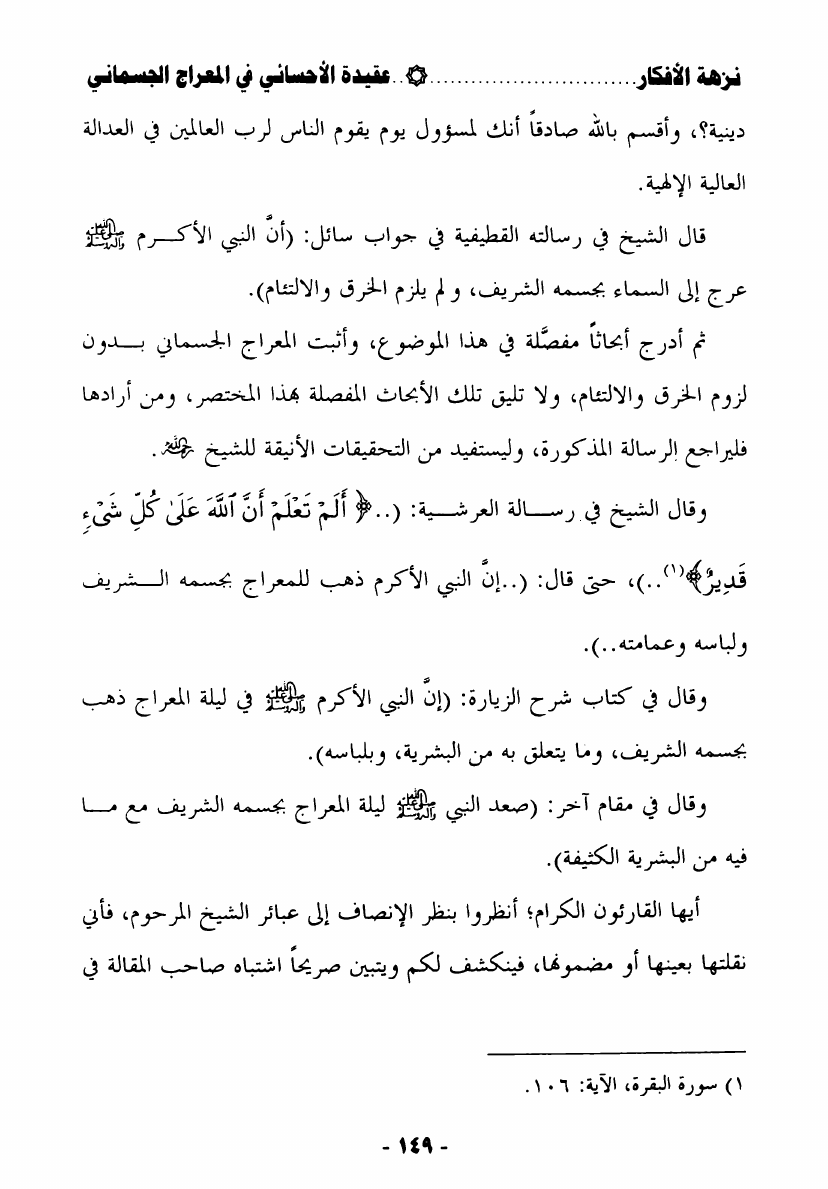 نزهة الأفكار..............................۞..عقيدة الأحسائي في المعراج الجسماني
دينية؟، وأقسم بالله صادقاً أنك لمسؤول يوم يقوم الناس لرب العالمين في العدالة
العالية الإلهية.
قال الشيخ في رسالته القطيفية في جواب سائل: (أنَّ النبي الأكـــرم صلى الله عليه وآله وسلم
عرج إلى السماء بجسمه الشريف، و لم يلزم الخرق والالتئام).
ثم أدرج أبحاثاً مفصَّلة في هذا الموضوع، وأثبت المعراج الجسماني بـــدون
لزوم الخرق والالتئام، ولا تليق تلك الأبحاث المفصلة بهذا المختصر، ومن أرادها
فليراجع الرسالة المذكورة، وليستفيد من التحقيقات الأنيقة للشيخ رحمه الله.
وقال الشيخ في رســـالة العرشـــية: (..﴿ أَلَمْ تَعْلَمْ أَنَّ ٱللَّهَ عَلَىٰ كُلِّ شَىْءٍ
قَدِيرٌ﴾(١)..)، حتى قال: (..إنَّ النبي الأكرم ذهب للمعراج بجسمه الـــشريف
ولباسه وعمامته..).
وقال في كتاب شرح الزيارة: (إنَّ النبي الأكرم صلى الله عليه وآله وسلم في ليلة المعراج ذهب
بجسمه الشريف، وما يتعلق به من البشرية، وبلباسه).
وقال في مقام آخر: (صعد النبي صلى الله عليه وآله وسلم ليلة المعراج بجسمه الشريف مع مـــا
فيه من البشرية الكثيفة).
أيها القارئون الكرام؛ أنظروا بنظر الإنصاف إلى عبائر الشيخ المرحوم، فأني
نقلتها بعينها أو مضمونها، فينكشف لكم ويتبين صريحاً اشتباه صاحب المقالة في
١) سورة البقرة، الآية: ١٠٦.
- ١٤٩ -